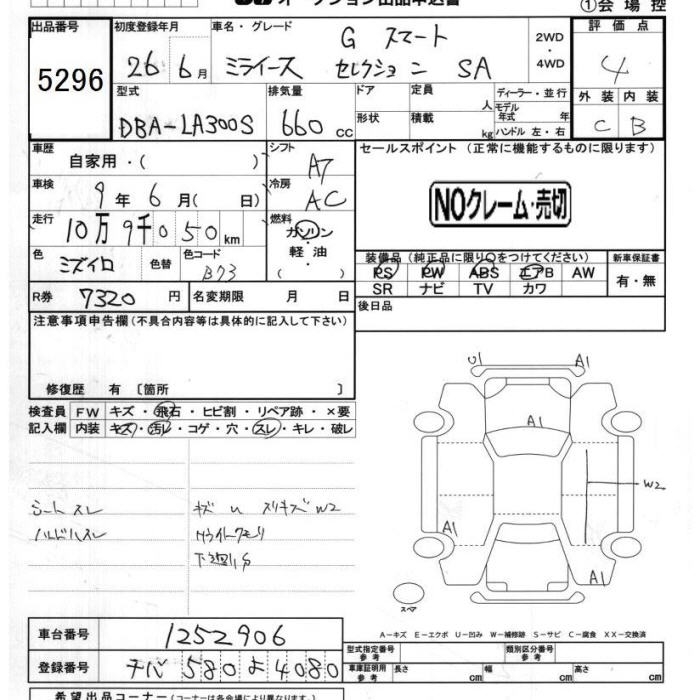 オークション出品申込書
①会場控
出品番号
5296
初度登録年月
26 6月
車名・グレード
G スマート
ミライース セレクション SA
2WD
・
4WD
評価点
4
外装 内装
C B
型式
DBA-LA300S
排気量
660 cc
ドア
形状
定員
人
積載
kg
ディーラー・並行
モデル年式 年
ハンドル 左・右
車歴
自家用・( )
シフト
AT
セールスポイント (正常に機能するものに限ります)
NOクレーム・売切
車検
9年 6月( 日)
冷房
AC
走行
10万 9千 0 5 0 km
燃料
ガソリン
軽・油
( )
色
ミズイロ
色替
色コード
B73
装備品(純正品に限り○をつけてください)
新車保証書
PS PW ABS エアB AW
SR ナビ TV カワ
有・無
R券 7320円
名変期限 月 日
後日品
注意事項申告欄(不具合内容等は具体的に記入して下さい)
修復歴 有 〔箇所 〕
検査員 FW キズ・飛石・ヒビ割・リペア跡・×要
記入欄 内装 キズ・汚レ・コゲ・穴・スレ・キレ・破レ
シートスレ
ハンドルスレ
キズ U スリキズ W2
下廻リサ
U1 A1
A1
W2
A1
A1
スペア
A-キズ E-エクボ U-凹み W-補修跡 S-サビ C-腐食 XX-交換済
車台番号 1252906
登録番号 チバ 580 よ 4080
型式指定番号
類別区分番号
参考
車庫証明用 参考 長さ cm 幅 cm 高さ cm
希望出品コーナー(コーナーは各会場により